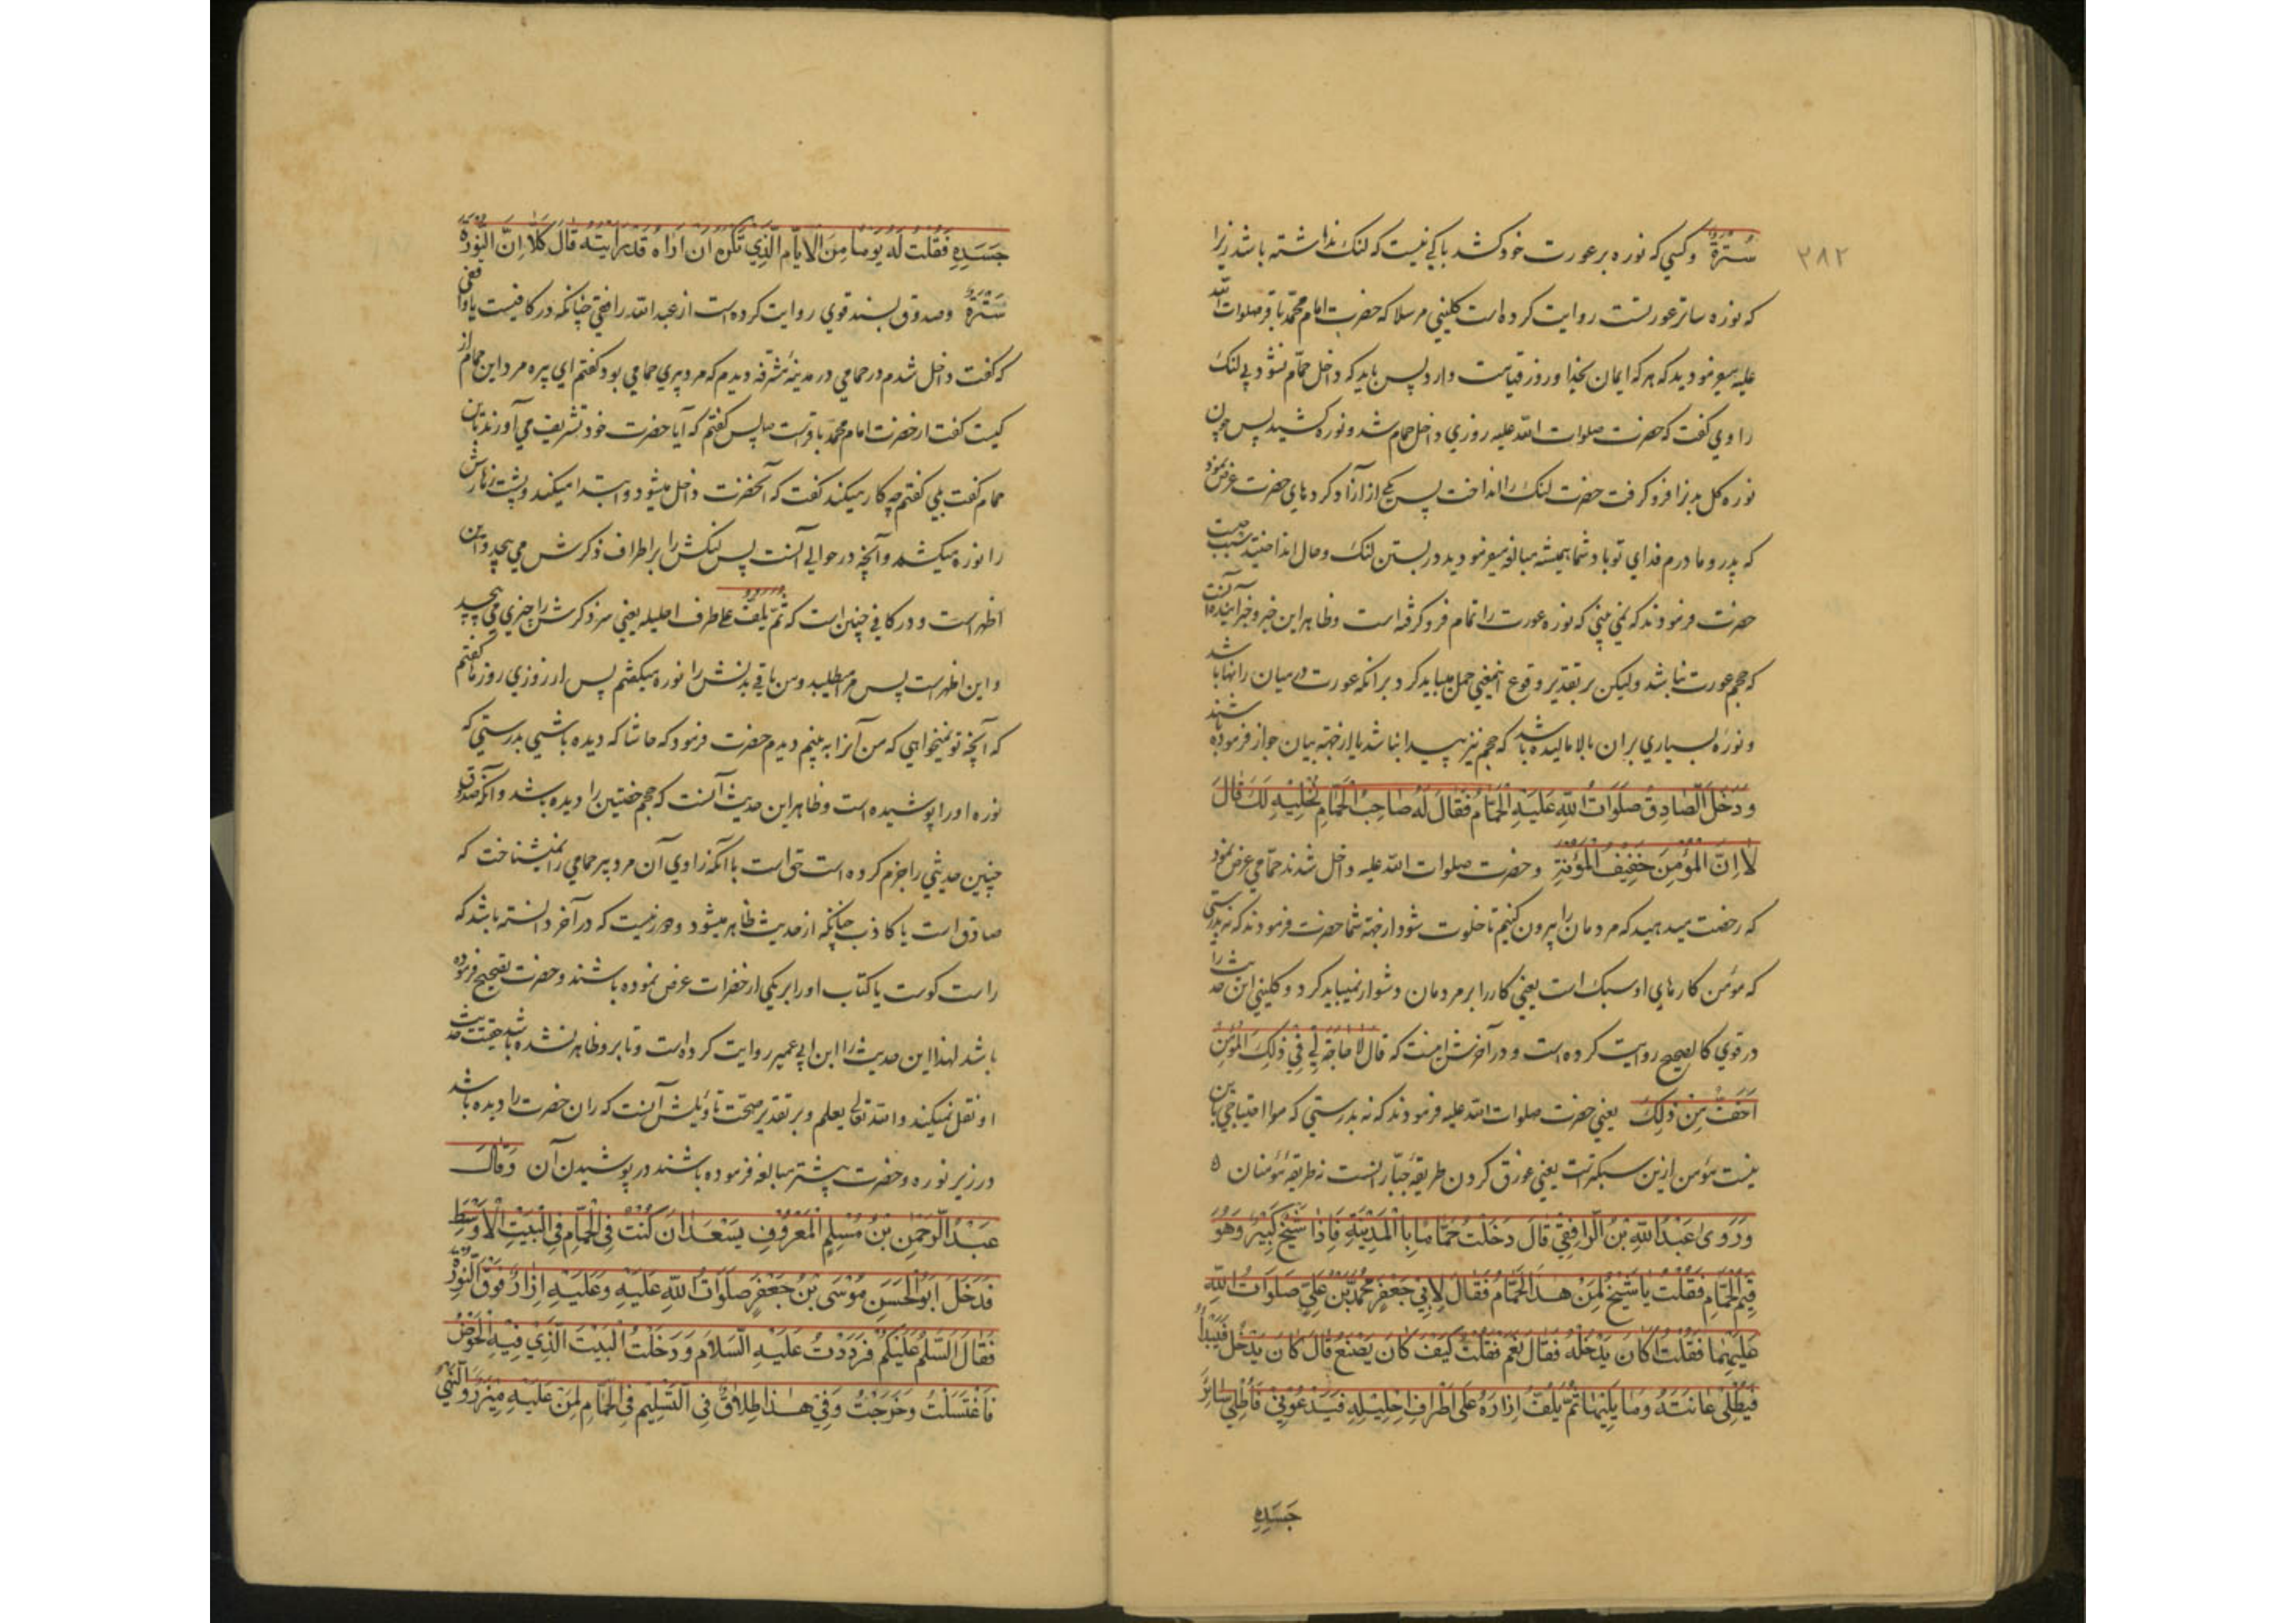 ۳۸۲
سُتْرَةٌ وکسی که نوره بر عورت خود کشد باکی نیست که لنک نداشته باشد زیرا
که نوره ساتر عورتست روایت کرده است کلینی مرسلا که حضرت امام محمّد باقر صلوات الله
علیه میفرمودید که هر که ایمان بخدا و روز قیامت دارد پس باید که داخل حمّام نشود بی لنک
راوی گفت که حضرت صلوات الله علیه روزی داخل حمام شد و نوره کشید پس چون
نوره کل بدنرا فرو کرفت حضرت لنک را انداخت پس یکی از آزاد کردهای حضرت عرض نمود
که پدر و مادرم فدای تو باد شما همیشه مبالغه میفرمودید در بستن لنک و حال انداختید سبب چیست
حضرت فرمودند که نمی بینی که نوره عورت را تمام فرو کرفته است و ظاهر این خبر و خبر آینده آنست
که حجم عورت نباشد ولیکن بر تقدیر وقوع اینمعنی حمل میباید کرد برانکه عورت در میان رانها باشد
و نوره بسیاری بران بالا مالیده باشد که حجم نیز پیدا نباشد یا از جهة بیان جواز فرموده باشند
وَدَخَلَ الصَّادِقُ صَلَوَاتُ اللهِ عَلَيْهِ الْحَمَّامَ فَقَالَ لَهُ صَاحِبُ الْحَمَّامِ نُخَلِّيْهِ لَكَ قَالَ
لَا اِنَّ الْمُؤْمِنَ خَفِيْفُ الْمَؤُنَةِ و حضرت صلوات الله علیه داخل شدند حمّامی عرض نمود
که رخصت میدهید که مردمان را بیرون کنیم تا خلوت شود از جهة شما حضرت فرمودند که نه بدرستی
که مؤمن کارهای او سبک است یعنی کار را بر مردمان دشوار نمیباید کرد و کلینی این حدیث را
در قوی کالصحیح روایت کرده است و در آخرش اینست که قال لا حاجة لی فی ذلك المؤمن
اَخَفُّ مِن ذٰلِكَ یعنی حضرت صلوات الله علیه فرمودند که نه بدرستی که مرا احتیاجی باین
نیست مؤمن ازین سبکتر است یعنی قرق کردن طریقهٔ جبّارانست نه طریقهٔ مؤمنان
وَرَوىٰ عَبْدُ اللهِ بْنُ الرَّافِقِيِّ قَالَ دَخَلْتُ حَمَّامًا بِالْمَدِيْنَةِ فَاِذَا شَيْخٌ كَبِيْرٌ وَهُوَ
قَيِّمُ الْحَمَّامِ فَقُلْتُ يَا شَيْخُ لِمَنْ هٰذَا الْحَمَّامُ فَقَالَ لِاَبِيْ جَعْفَرٍ مُحَمَّدِ بْنِ عَلِيٍّ صَلَوَاتُ اللهِ
عَلَيْهِمَا فَقُلْتُ اَكَانَ يَدْخُلُهُ فَقَالَ نَعَمْ فَقُلْتُ كَيْفَ كَانَ يَصْنَعُ قَالَ كَانَ يَدْخُلُ فَيَبْدَأُ
فَيُطْلِیْ عَانَتَهُ وَمَا يَلِيْهَا ثُمَّ يَلُفُّ اِزَارَهُ عَلٰى اَطْرَافِ اِحْلِيْلِهِ فَيَدْعُوْنِيْ فَاُطْلِيْ سَائِرَ
جَسَدِهِ
جَسَدِهِ فَقُلْتُ لَهُ يَوْمًا مِنَ الْاَيَّامِ الَّذِيْ تَكْرَهُ اَنْ اَرَاهُ قَدْ رَاَيْتُهُ قَالَ كَلَّا اِنَّ النُّوْرَةَ
سُتْرَةٌ وصدوق بسند قوی روایت کرده است از عبد الله رافقی چنانکه در کافیست یا واقفی
که گفت داخل شدم در حمامی در مدینهٔ مشرّفه دیدم که مرد پیری حمامی بود کفتم ای پیره مرد این حمام از
کیست گفت از حضرت امام محمّد باقرست ص پس کفتم که آیا حضرت خود تشریف می آورند باین
حمام گفت بلی کفتم چه کار میکنند گفت که آنحضرت داخل میشود و ابتدا میکند و پشت زهارش
را نوره میکشد و آنچه در حوالی آنست پس لنکش را بر اطراف ذکرش می پیچد و این
اظهر است و در کافی چنین است که ثُمَّ يَلُفُّ علی طرف احلیله یعنی سر ذکرش را چیزی می پیچد
و این اظهر است پس مرا میطلبید و من باقی بدنش را نوره میکشم پس از روزی روزها کفتم
که آنچه تو نمیخواهی که من آنرا به بینم دیدم حضرت فرمود که حاشا که دیده باشی بدرستی که
نوره او را پوشیده است و ظاهر این حدیث آنست که حجم خفتین را دیده باشد و آنکه صدوق
چنین حدیثی را جزم کرده است حق است با آنکه راوی آن مرد پیر حمامی را نمیشناخت که
صادق است یا کاذب چنانکه از حدیث ظاهر میشود و دور نیست که در آخر دانسته باشد که
راست کوست یا کتاب او را بر یکی از حضرات عرض نموده باشند و حضرت تصحیح فرموده
باشد لهذا این حدیث را ابن ابی عمیر روایت کرده است و تا برو ظاهر نشده باشد حقیقت حدیث
او نقل نمیکند والله تعالی یعلم و بر تقدیر صحّت تاویلش آنست که ران حضرت را دیده باشد
در زیر نوره و حضرت پیشتر مبالغه فرموده باشند در پوشیدن آن وَقَالَ
عَبْدُ الرَّحْمٰنِ بْنُ مُسْلِمٍ الْمَعْرُوْفُ بِسَعْدَانَ كُنْتُ فِى الْحَمَّامِ فِى الْبَيْتِ الْاَوْسَطِ
فَدَخَلَ اَبُو الْحَسَنِ مُوْسَى بْنُ جَعْفَرٍ صَلَوَاتُ اللهِ عَلَيْهِ وَعَلَيْهِ اِزَارٌ فَوْقَ النُّوْرَةِ
فَقَالَ السَّلٰمُ عَلَيْكُمْ فَرَدَدْتُ عَلَيْهِ السَّلَامَ وَدَخَلْتُ الْبَيْتَ الَّذِيْ فِيْهِ الْحَوْضُ
فَاغْتَسَلْتُ وَخَرَجْتُ وَفِيْ هٰذَا اِطْلَاقٌ فِى التَّسْلِيْمِ فِى الْحَمَّامِ لِمَنْ عَلَيْهِ مِئْزَرٌ وَالنَّهْيُ